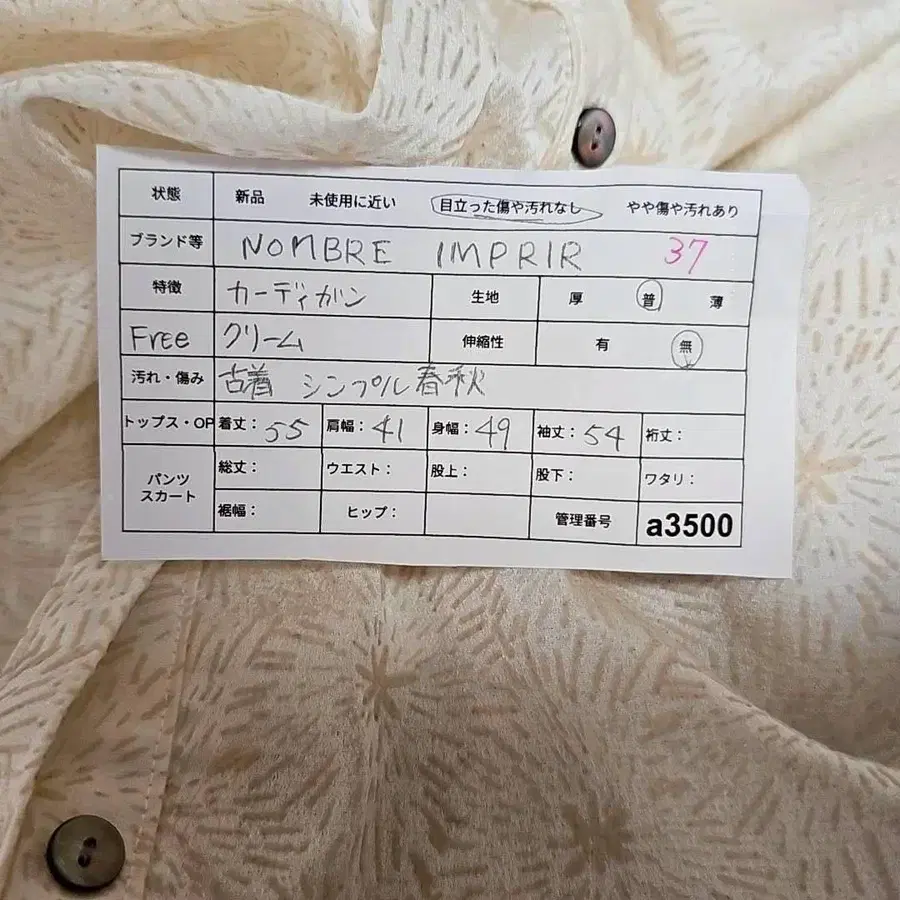 状態 新品 未使用に近い 目立った傷や汚れなし やや傷や汚れあり
ブランド等 NOMBRE IMPRIR 37
特徴 カーディガン 生地 厚 普 薄
Free クリーム 伸縮性 有 無
汚れ・傷み 古着 シンプル 春秋
トップス・OP 着丈: 55 肩幅: 41 身幅: 49 袖丈: 54 裄丈:
パンツ スカート 総丈: ウエスト: 股上: 股下: ワタリ:
裾幅: ヒップ: 管理番号 a3500